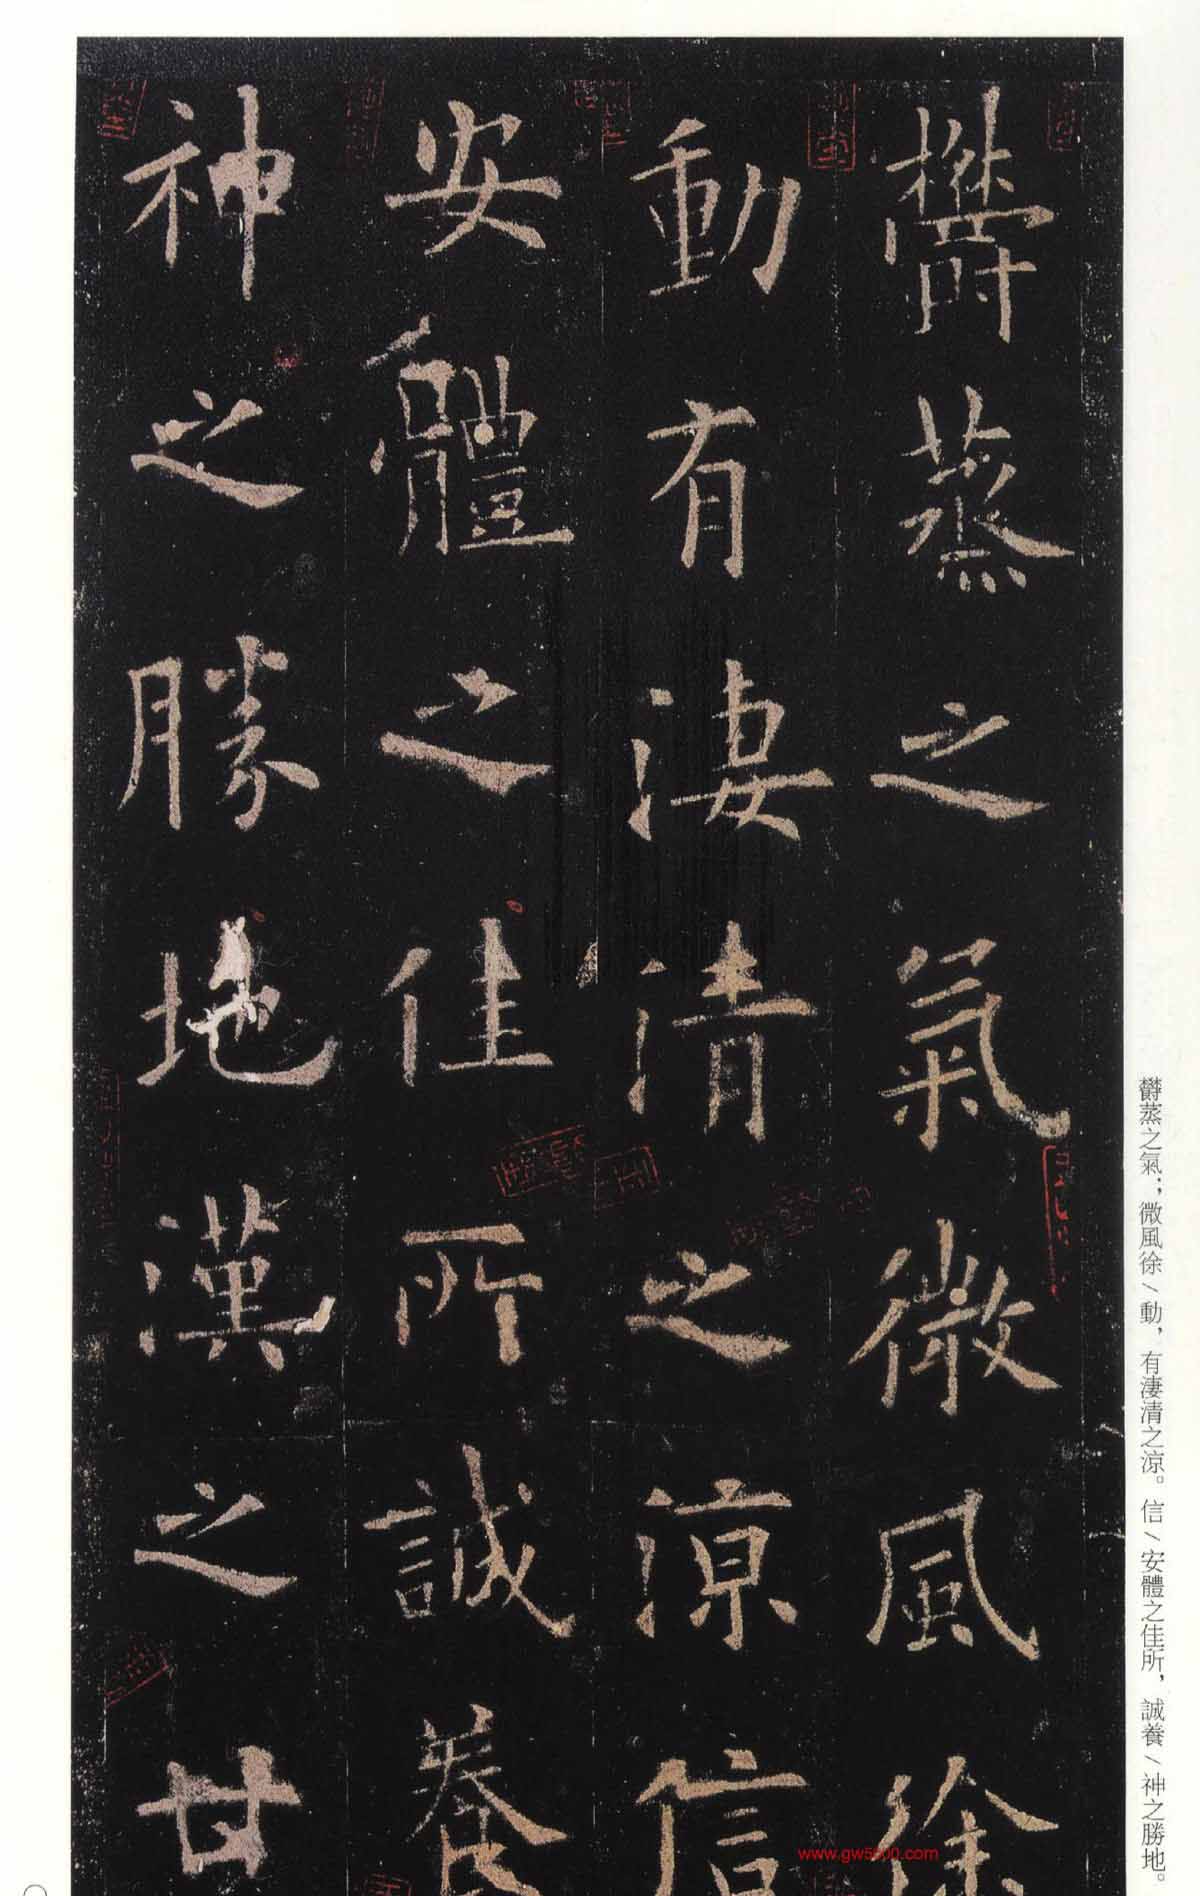 欝蒸之氣微風徐
動有淒清之涼信
安體之佳所誠養
神之勝地漢之甘
欝蒸之氣；微風徐\動，有淒清之涼。信\安體之佳所，誠養\神之勝地。
www.gw5600.com